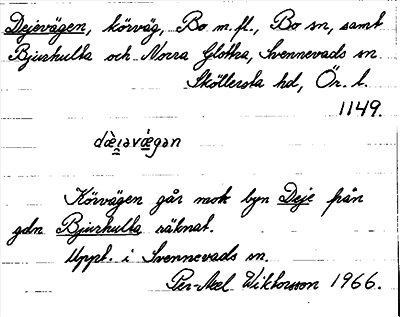 Dejevägen, körväg, Bo m.fl., Bo sn, samt
Bjurhulta och Norra Glottra, Svennevads sn
Sköllersta hd, Ör. l.
1149.
dæ̀ɪəvǽgən
Körvägen går mot byn Deje från
gdn Bjurhulta räknat.
Uppt. i Svennevads sn.
Per-Axel Wiktorsson 1966.